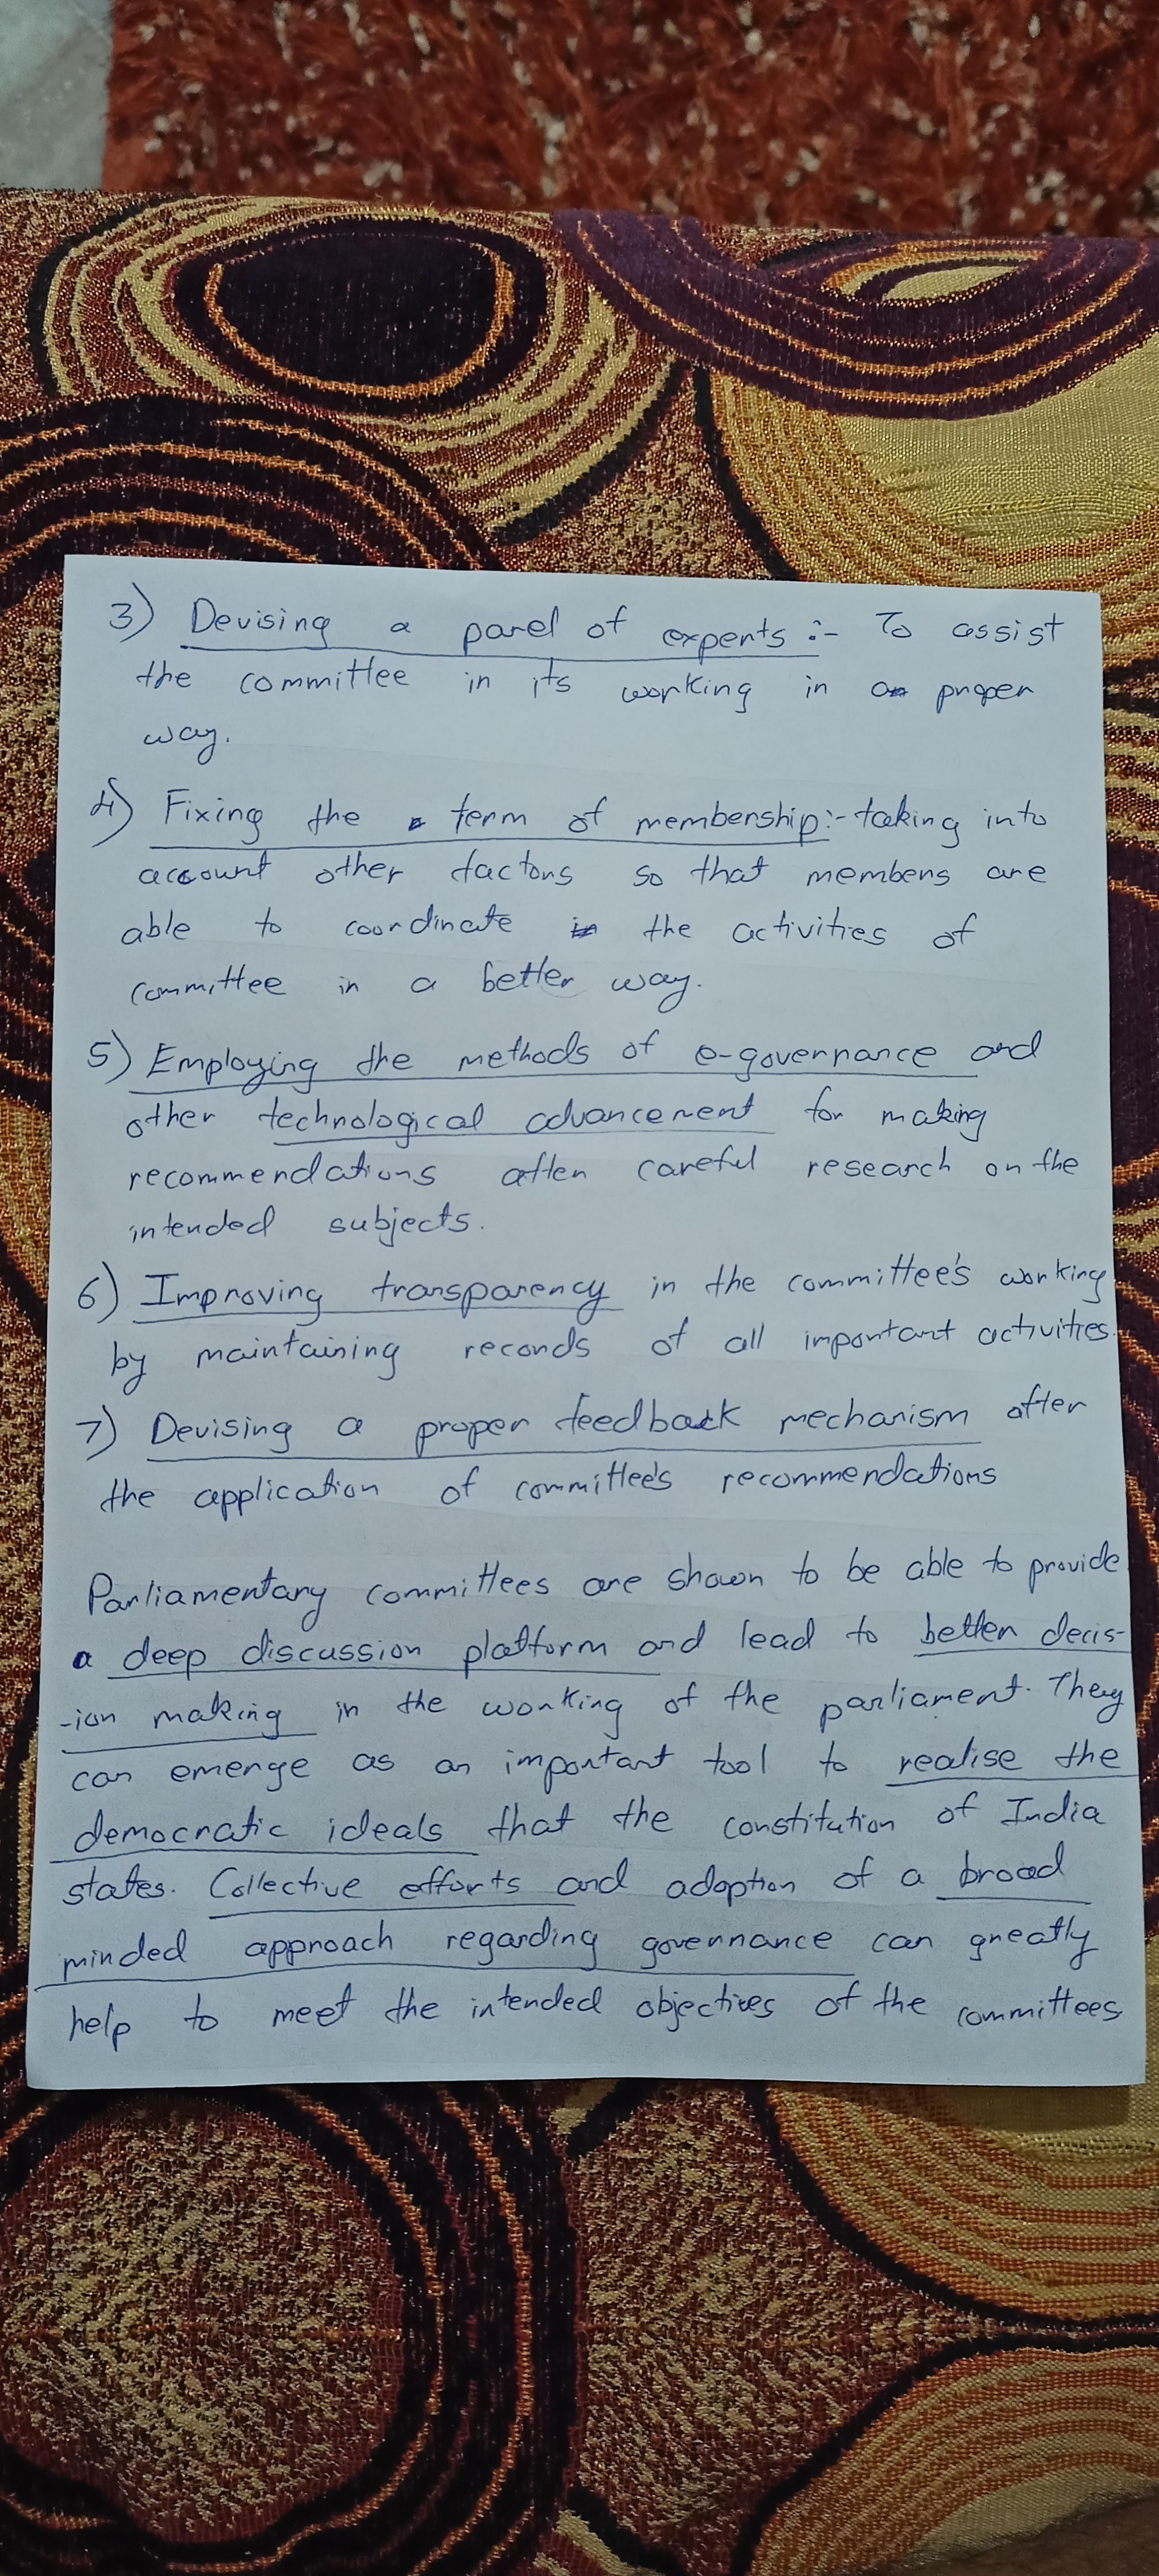 3) Devising a panel of experts :- To assist
the committee in its working in a proper
way.
4) Fixing the term of membership:- taking into
account other factors so that members are
able to coordinate the activities of
committee in a better way.
5) Employing the methods of e-governance and
other technological advancement for making
recommendations after careful research on the
intended subjects.
6) Improving transparency in the committee's working
by maintaining records of all important activities.
7) Devising a proper feedback mechanism after
the application of committee's recommendations
Parliamentary committees are shown to be able to provide
a deep discussion platform and lead to better decis-
-ion making in the working of the parliament. They
can emerge as an important tool to realise the
democratic ideals that the constitution of India
states. Collective efforts and adoption of a broad
minded approach regarding governance can greatly
help to meet the intended objectives of the committees